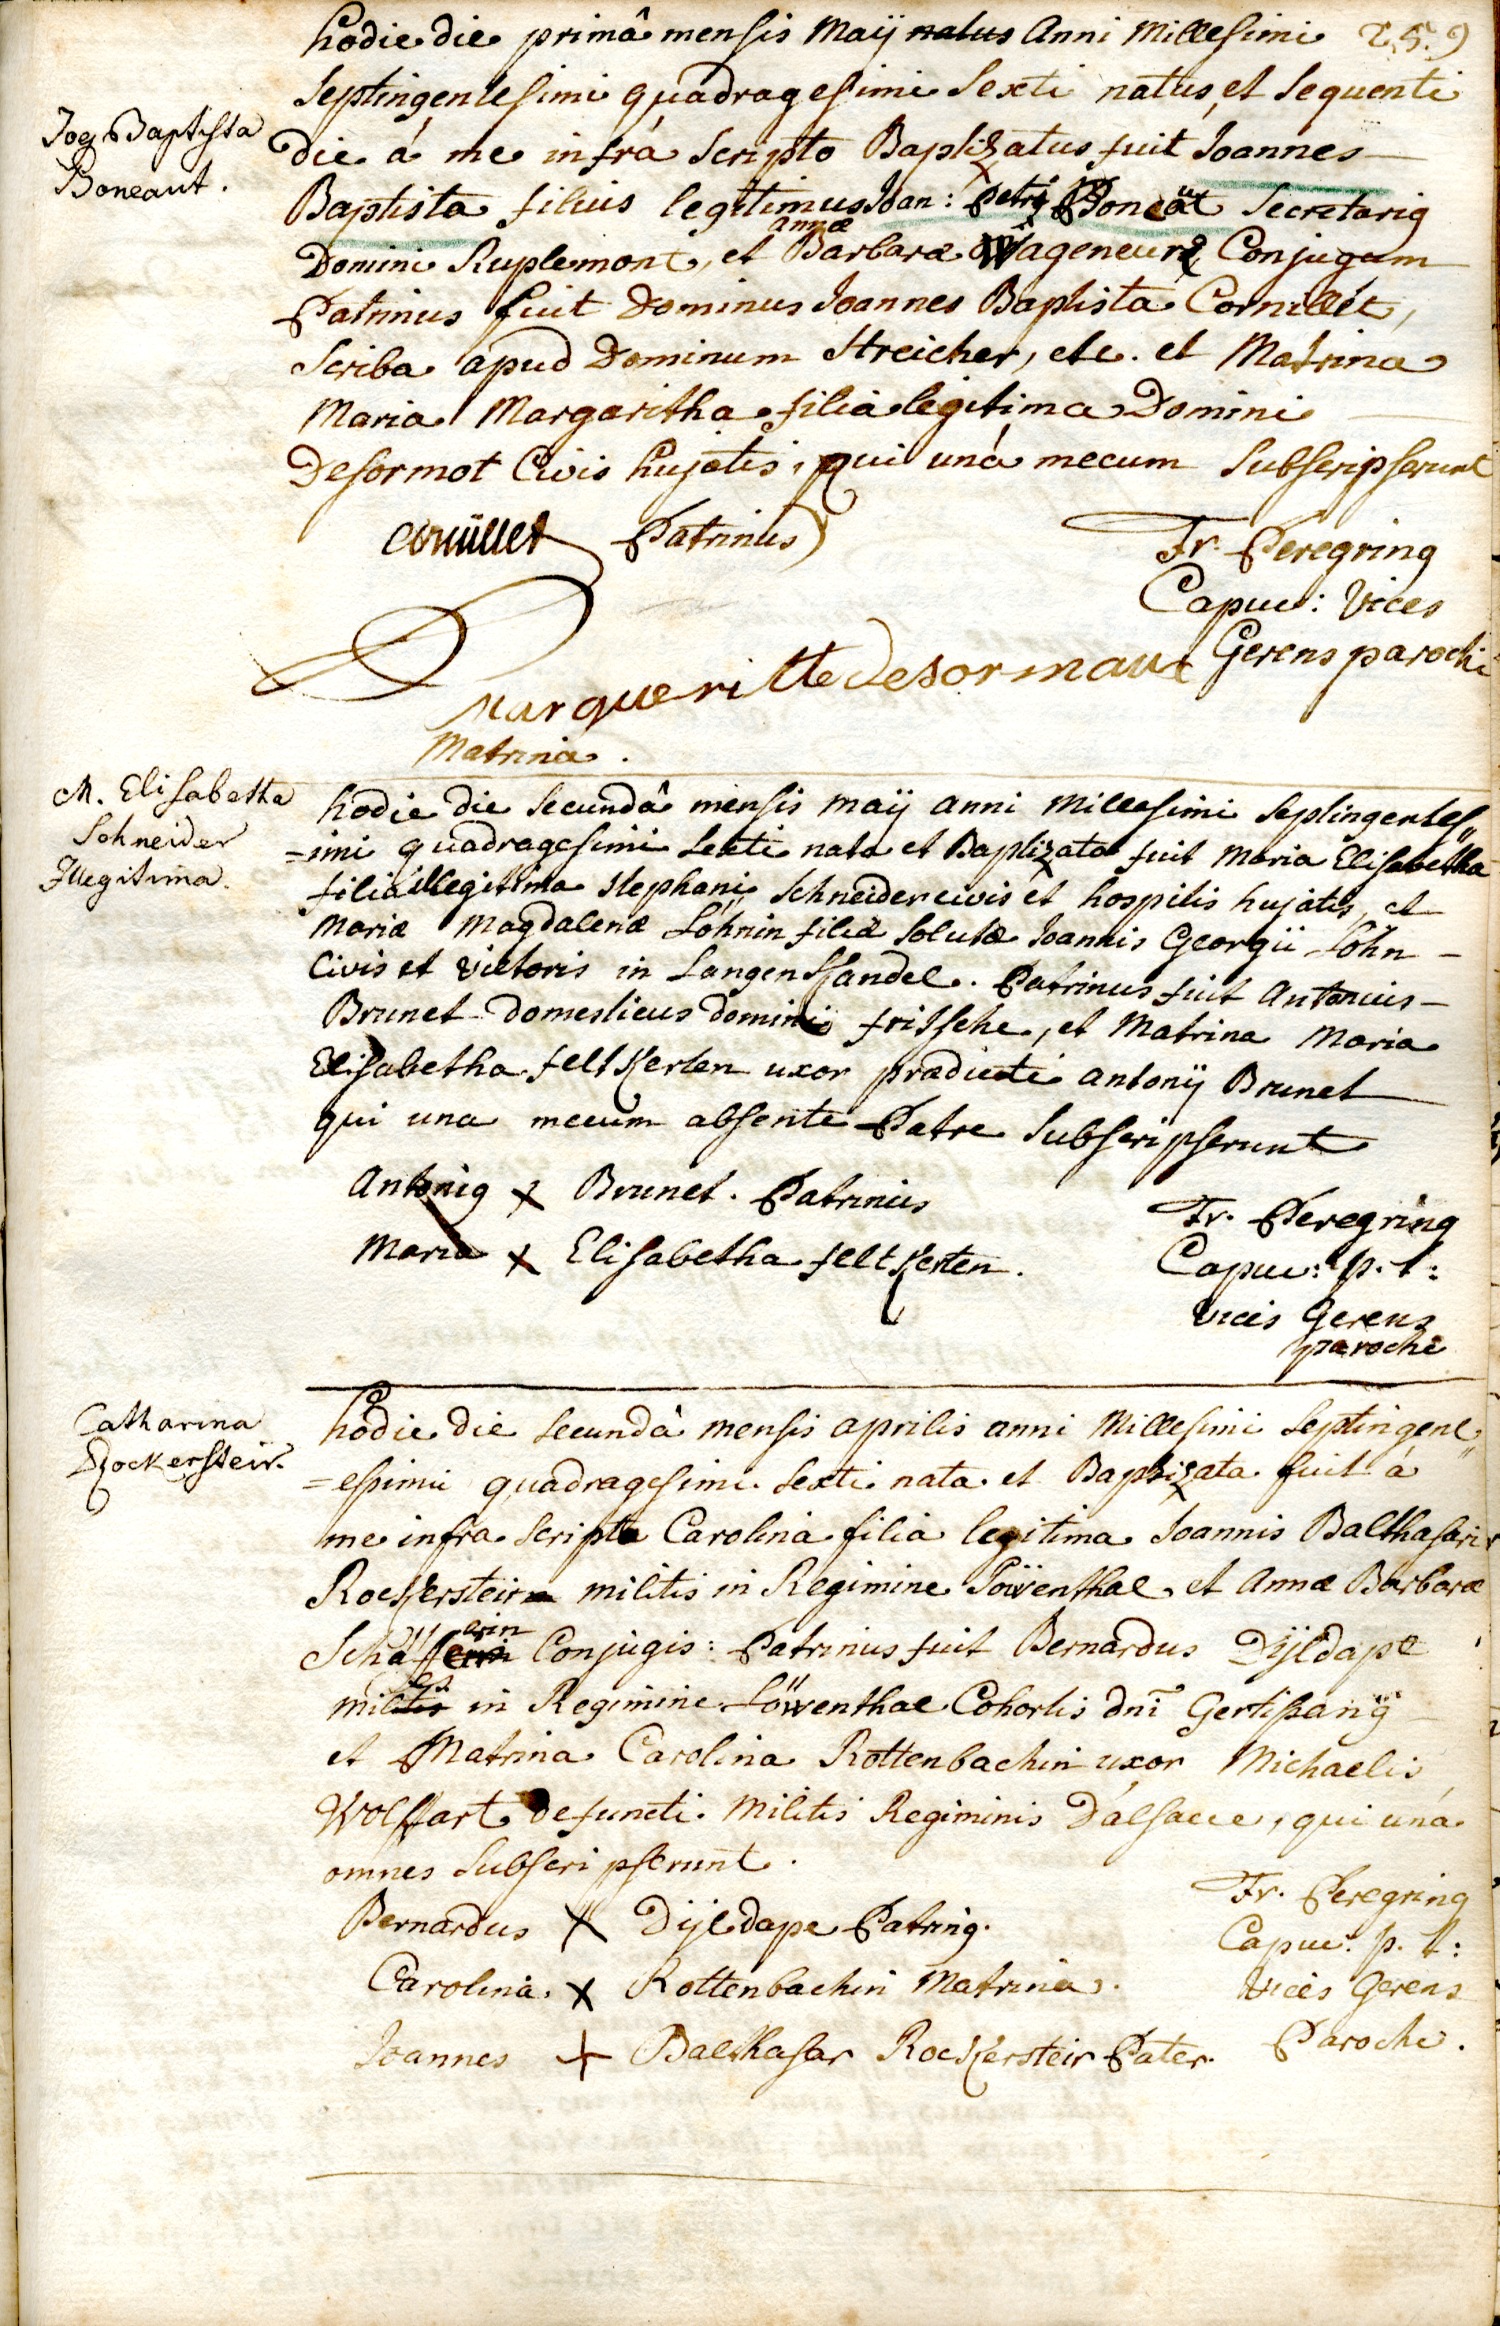 hodie die primâ mensis Maij natus Anni Millesimi 259
Septingentesimi quadragesimi Sexti natus, et Sequenti
Joes Baptista
Boneaut.
die á me infrá Scripto Baptizatus fuit Joannes
Baptista filius legitimus Joan: Petri Boneaut Secretarius
Domini Ruplemont, et annæ Barbaræ Wageneurs Conjugum
Patrinus fuit Dominus Joannes Baptista Cornillét,
Scriba apud Dominum Streicher, etc. et Matrina
Maria Margaritha filia legitima Domini
Desormot Civis hujatis, qui uná mecum Subscripserunt
Cornillet Patrinus
Fr. Peregrinus
Capuc: Vices
Gerens parochi
Margueritte desormaux
Matrina.
M. Elisabetha
Schneider
Illegitima.
hodie die Secundâ mensis maij anni Millesimi Septingentes=
=imi quadragesimi Sexti nata et Baptizata fuit Maria Elisabetha
filia illegitima Stephani Schneider civis et hospitis hujatis, et
Mariæ Magdalenæ Löhnin filiæ Solutæ Joannis Georgii Löhn
Civis et vietoris in Langenkandel. Patrinus fuit Antonius
Brunet domesticus domini fritsche, et Matrina Maria
Elisabetha feltkerten uxor prædicti antonij Brunet
qui una mecum absente Patre Subscripserunt
Antonius x Brunet. Patrinus
Maria x Elisabetha feltkerten.
Fr. Peregrinus
Capuc: p. t:
vices Gerens
parochi
Catharina
Rockersteir.
hodie die Secundâ mensis aprilis anni Millesimi Septingent=
=esimi quadragesimi Sexti nata et Baptizata fuit á
me infra Scripto Carolina filia legitima Joannis Balthasaris
Rockersteir militis in Regimine Löwenthal et Annæ Barbaræ
Schäfferin Conjugis: Patrinus fuit Bernardus Dijldape
miles in Regimine Löwenthal Cohortis dni Gertisanij
et Matrina Carolina Rottenbachin uxor Michaelis
Wolffart defuncti Militis Regiminis D'alsace, qui uná
omnes Subscripserunt.
Bernardus X Dijldape Patrinus.
Carolina. x Rottenbachin Matrina.
Joannes + Balthasar Rockersteir Pater.
Fr. Peregrinus
Capuc: p. t:
vices Gerens
Parochi.